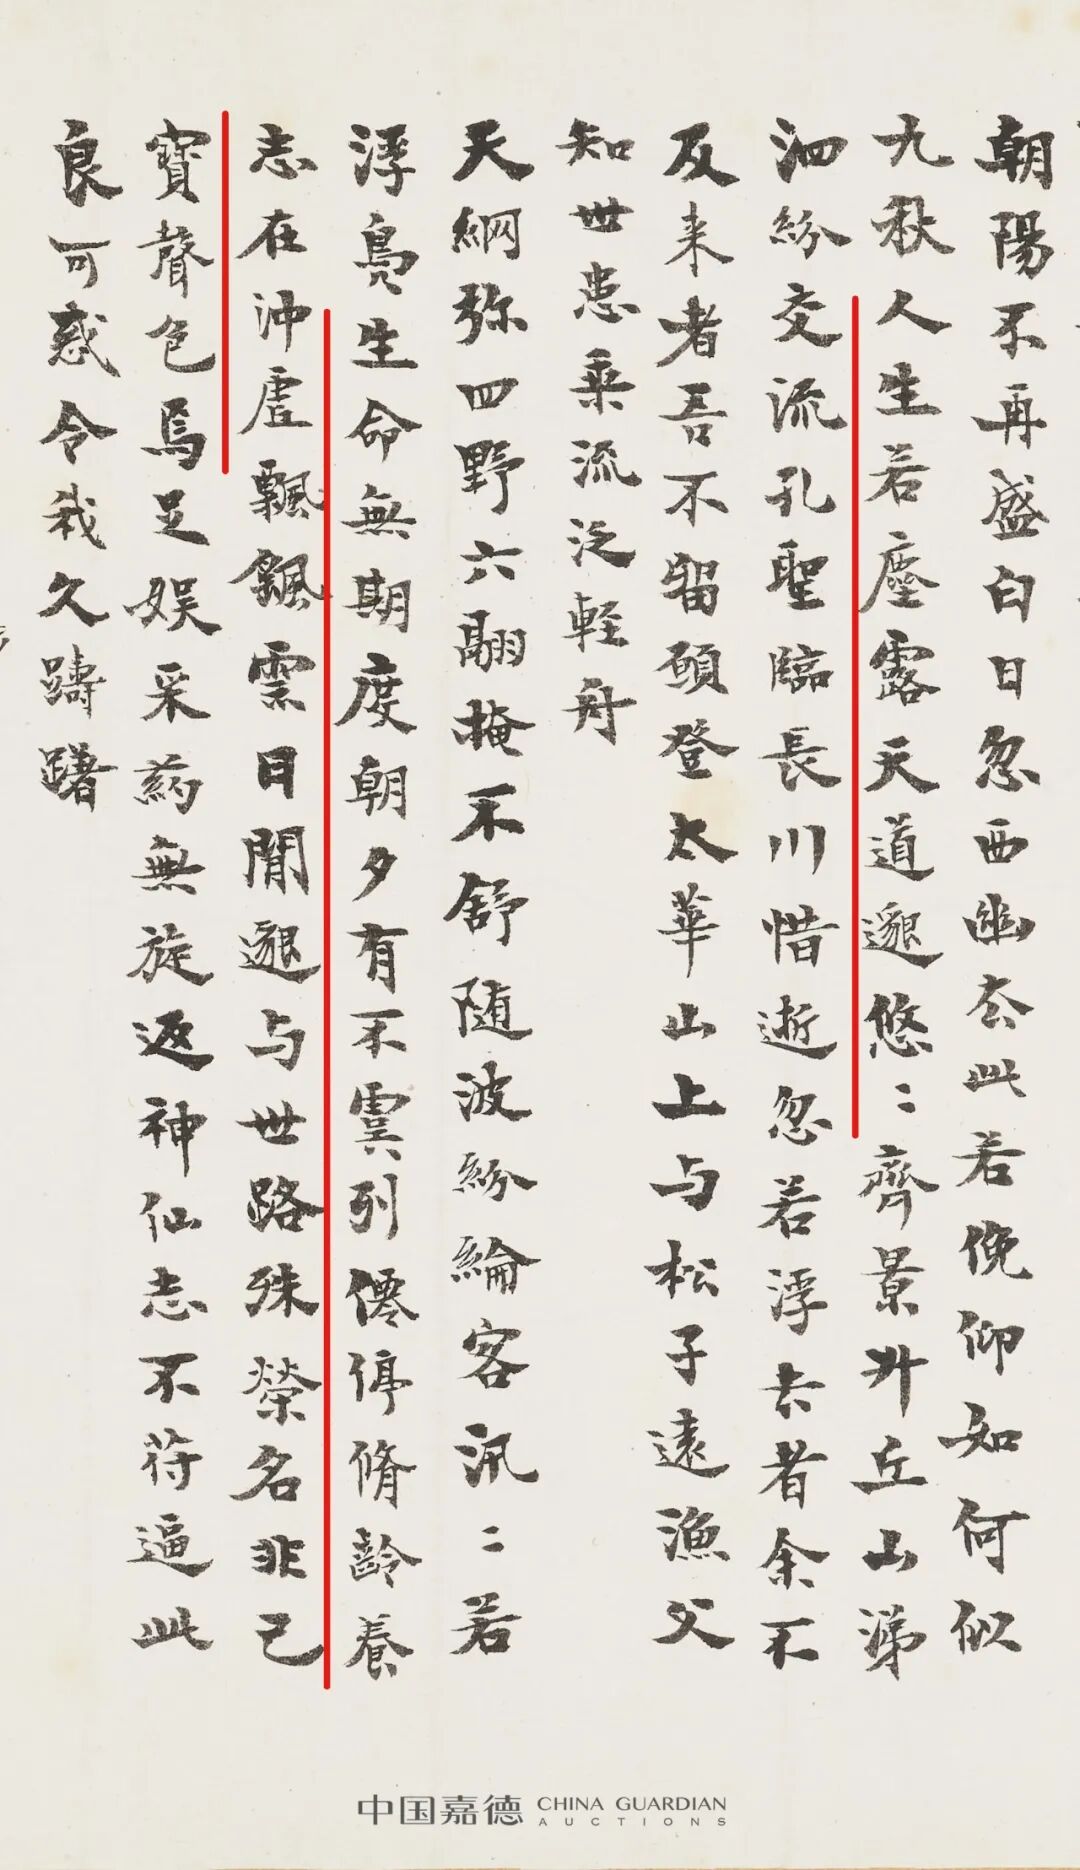 朝陽不再盛白日忽西幽去此若俛仰如何似
九秋人生若塵露天道邈悠〻齊景升丘山涕
泗紛交流孔聖臨長川惜逝忽若浮去者余不
反来者吾不留願登太華山上与松子遠漁父
知世患乗流泛軽舟
天網弥四野六翮掩不舒随波紛綸客汎〻若
浮鳬生命無期度朝夕有不虞列僊停脩齡養
志在沖虚飄飖雲日間邈与世路殊榮名非己
寶聲色焉足娱采药無旋返神仙志不符逼此
良可惑令我久躊躇
中国嘉德 CHINA GUARDIAN
AUCTIONS